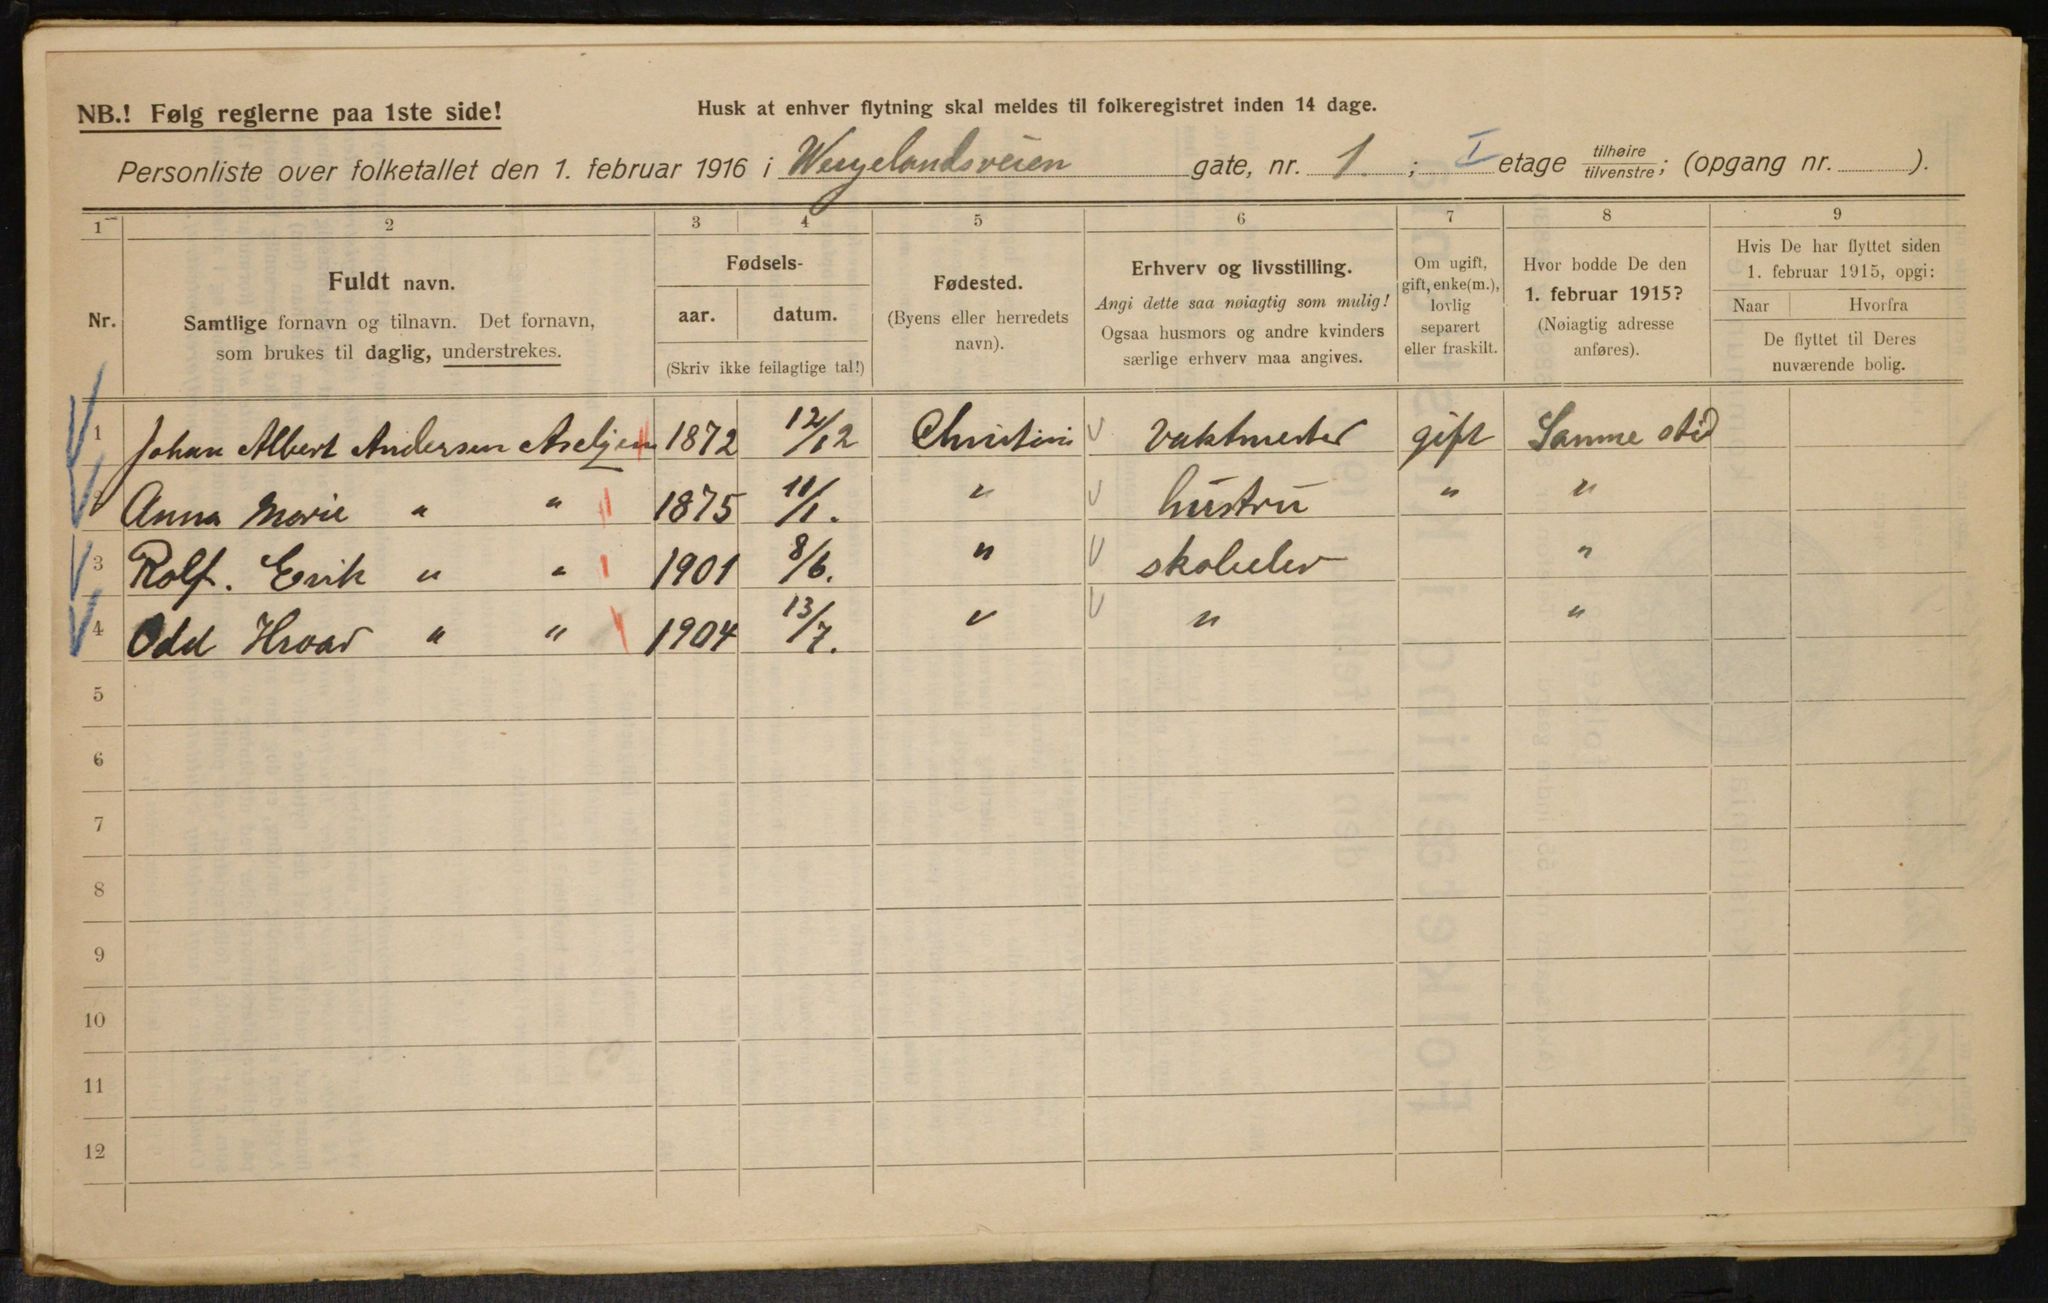 NB.! Følg reglerne paa 1ste side!
Husk at enhver flytning skal meldes til folkeregistret inden 14 dage.
Personliste over folketallet den 1. februar 1916 i Wergelandsveien gate, nr. 1. ; I etage tilhøire tilvenstre; (opgang nr. ).
1 2 3 4 5 6 7 8 9
Nr.
Fuldt navn.
Samtlige fornavn og tilnavn. Det fornavn,
som brukes til daglig, understrekes.
Fødsels-
aar. datum.
(Skriv ikke feilagtige tal!)
Fødested.
(Byens eller herredets
navn).
Erhverv og livsstilling.
Angi dette saa nøiagtig som mulig!
Ogsaa husmors og andre kvinders
særlige erhverv maa angives.
Om ugift,
gift, enke(m.),
lovlig
separert
eller fraskilt.
Hvor bodde De den
1. februar 1915?
(Nøiagtig adresse
anføres).
Hvis De har flyttet siden
1. februar 1915, opgi:
Naar Hvorfra
De flyttet til Deres
nuværende bolig.
1 Johan Albert Andersen 1872 12/12 Christini Vaktmester gift Samme sted
2 Anna Marie " " 1875 11/1. " hustru " "
3 Rolf. Erik " " 1901 8/6. " skoleelev "
4 Odd Hroar " " 1904 13/7. " " "
5
6
7
8
9
10
11
12